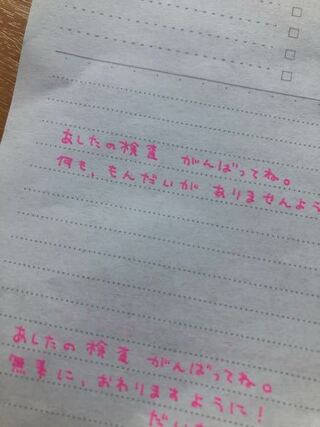 あしたの検査 がんばってね。
何も、もんだいが ありませんよう
あしたの検査 がんばってね。
無事に、おわりますように!
だい